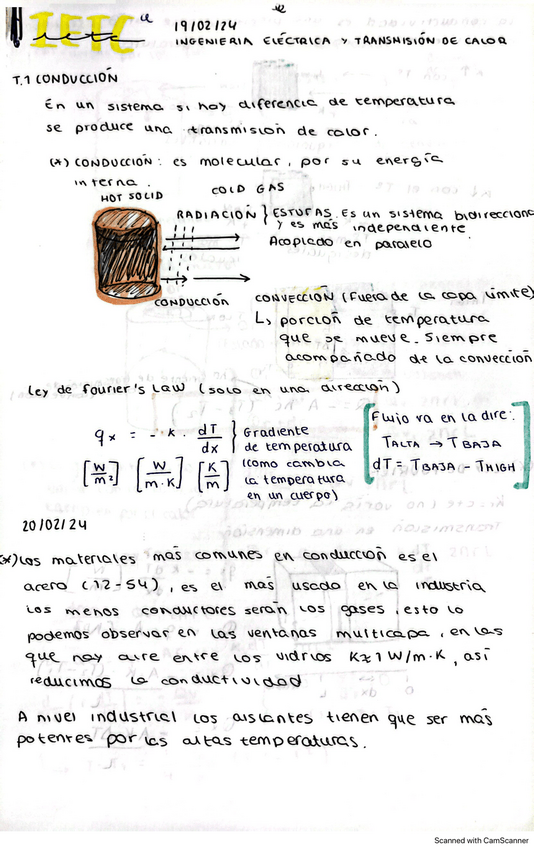 IETC
ietc
19/02/24
INGENIERIA ELÉCTRICA Y TRANSMISIÓN DE CALOR
T.1 CONDUCCIÓN
En un sistema si hay diferencia de temperatura
se produce una transmision de calor.
(*) CONDUCCIÓN: es molecular, por su energía
interna.
HOT SOLID
COLD GAS
RADIACIÓN } ESTUFAS. Es un sistema bidirecciona
y es más independiente
Acoplado en paralelo
CONDUCCIÓN
CONVECCIÓN (Fuera de la capa límite)
↳ porción de temperatura
que se mueve. Siempre
acompañado de la convección
Ley de Fourier's Law (solo en una dirección)
qx = - K · dT/dx } Gradiente
de temperatura
(como cambia
la temperatura
en un cuerpo)
[W/m²] [W/m·K] [K/m]
Flujo va en la dire:
TALTA → TBAJA
dT = TBAJA - THIGH
20/02/24
(*) Los materiales más comunes en conducción es el
acero (12-54), es el más usado en la industria
Los menos conductores serán los gases, esto lo
podemos observar en las ventanas multicapa, en las
que hay aire entre los vidrios K≈1 W/m·K, así
reducimos la conductividad
A nivel industrial los aislantes tienen que ser más
potentes por las altas temperaturas.
Scanned with CamScanner